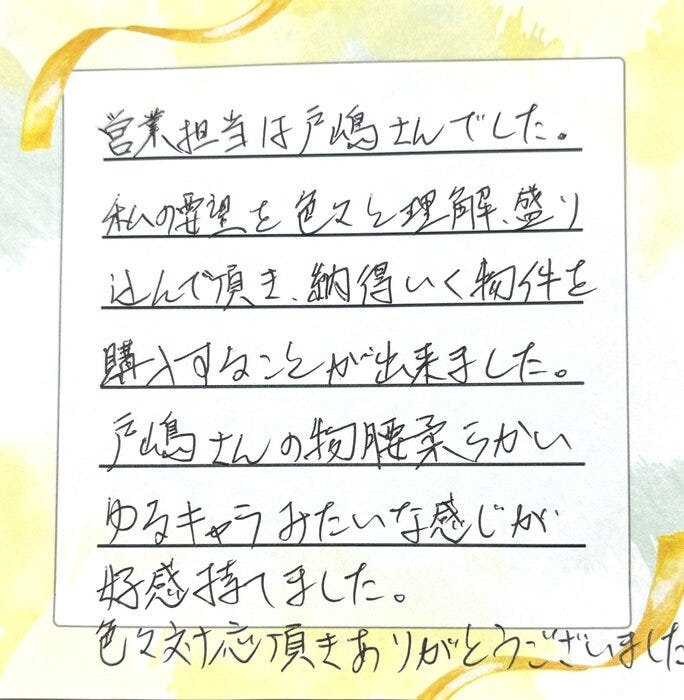 営業担当は戸嶋さんでした。
私の要望を色々と理解、盛り
込んで頂き、納得いく物件を
購入することが出来ました。
戸嶋さんの物腰柔らかい
ゆるキャラみたいな感じが
好感持てました。
色々対応頂きありがとうございました